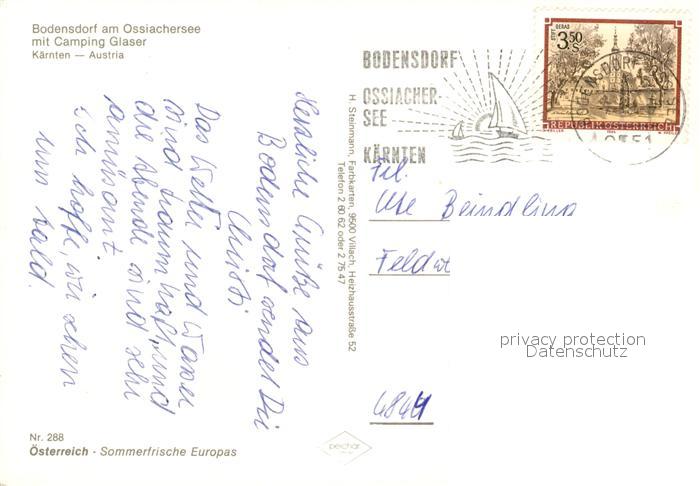 Bodensdorf am Ossiachersee
mit Camping Glaser
Kärnten — Austria
BODENSDORF
OSSIACHER-
SEE
KÄRNTEN
STIFT GERAS
3.50
S
REPUBLIK ÖSTERREICH
9551
Herzliche Grüße aus
Bodensdorf sendet Dir
Christi
Das Wetter und Wasser
sind traumhaft, und
die Abende sind sehr
amüsant
Ich hoffe, wir sehen
uns bald.
H. Steinmann, Farbkarten, 9500 Villach, Heizhausstraße 52
Telefon 2 60 62 oder 2 75 47
Ute
Feldw
privacy protection
Datenschutz
Nr. 288
Österreich - Sommerfrische Europas